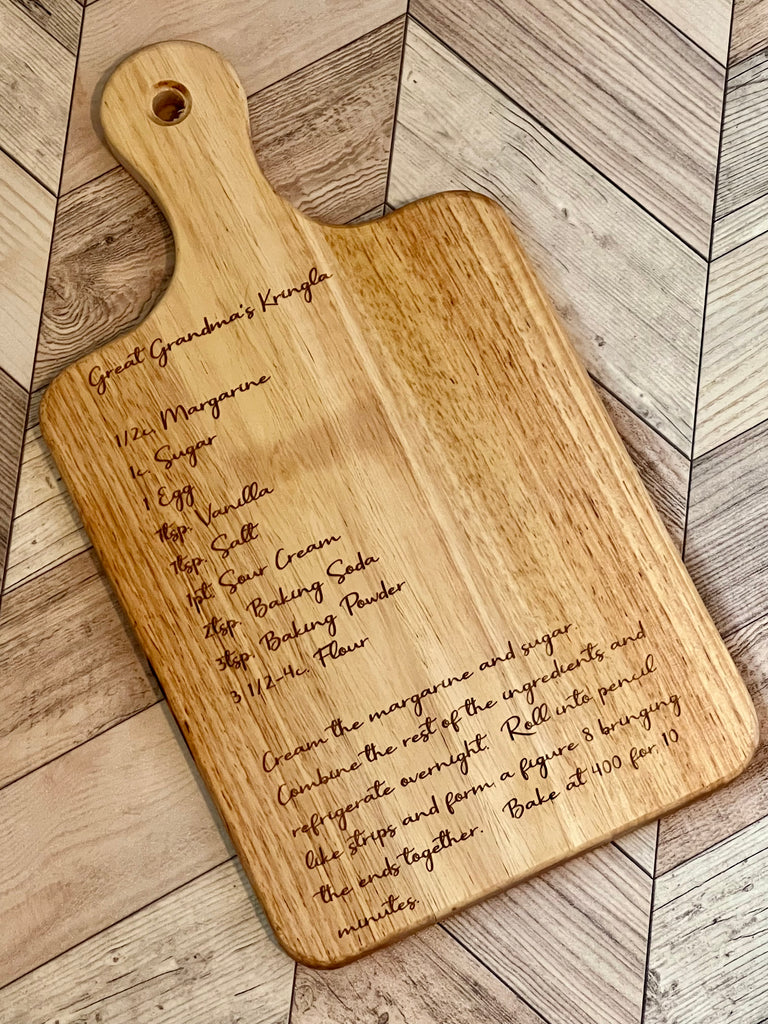 Great Grandma's Kringla
1/2c. Margarine
1c. Sugar
1 Egg
1tsp. Vanilla
1tsp. Salt
1pt. Sour Cream
2tsp. Baking Soda
3tsp. Baking Powder
3 1/2-4c. Flour
Cream the margarine and sugar.
Combine the rest of the ingredients and
refrigerate overnight. Roll into pencil
like strips and form a figure 8 bringing
the ends together. Bake at 400 for 10
minutes.